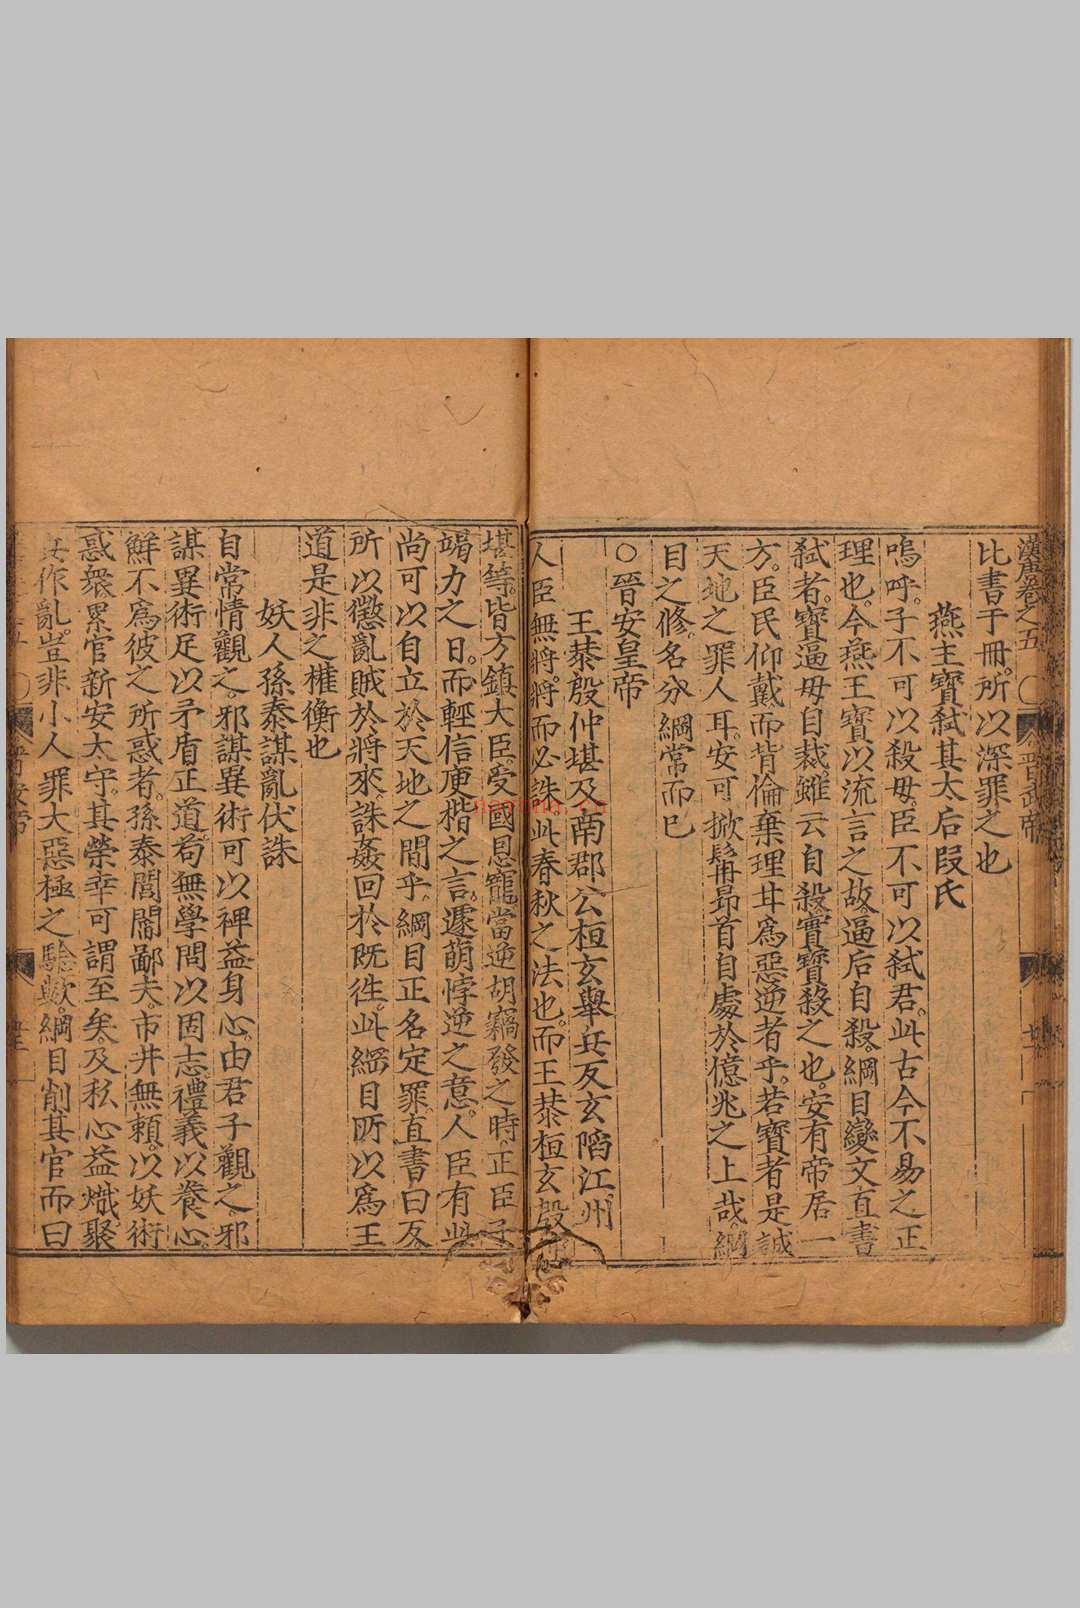 漢唐卷之五 〇 晉武帝
比書于冊。所以深罪之也
燕主寶弒其太后段氏
嗚呼。子不可以殺母。臣不可以弒君。此古今不易之正
理也。今燕王寶以流言之故。逼后自殺。綱目變文直書
弒者。寶逼毋自裁。雖云自殺。實寶殺之也。安有帝居一
方。臣民仰戴而背倫棄理。甘爲惡逆者乎。若寶者是誠
天地之罪人耳。安可掀髯昂首自處於億兆之上哉。綱
目之修。名分綱常而已
〇晉安皇帝
王恭殷仲堪及南郡公桓玄舉兵反玄陷江州
人臣無將。將而必誅。此春秋之法也。而王恭桓玄殷仲
堪等。皆方鎮大臣。受國恩寵。當逆胡竊發之時。正臣子
竭力之日。而輕信庾楷之言。遽萌悖逆之意。人臣有此
尚可以自立於天地之間乎。綱目正名定罪。直書曰反。
所以懲亂賊於將來。誅姦回於既徃。此綱目所以爲王
道是非之權衡也
妖人孫泰謀亂伏誅
自常情觀之。邪謀異術可以裨益身心。由君子觀之。邪
謀異術足以矛盾正道。苟無學問以固志。禮義以養心。
鮮不爲彼之所惑者。孫泰閭閻鄙夫。市井無賴。以妖術
惑衆。累官新安太守。其榮幸可謂至矣。及私心益熾。聚
作亂。豈非小人罪大惡極之驗歟。綱目削其官而曰
nayona.cn